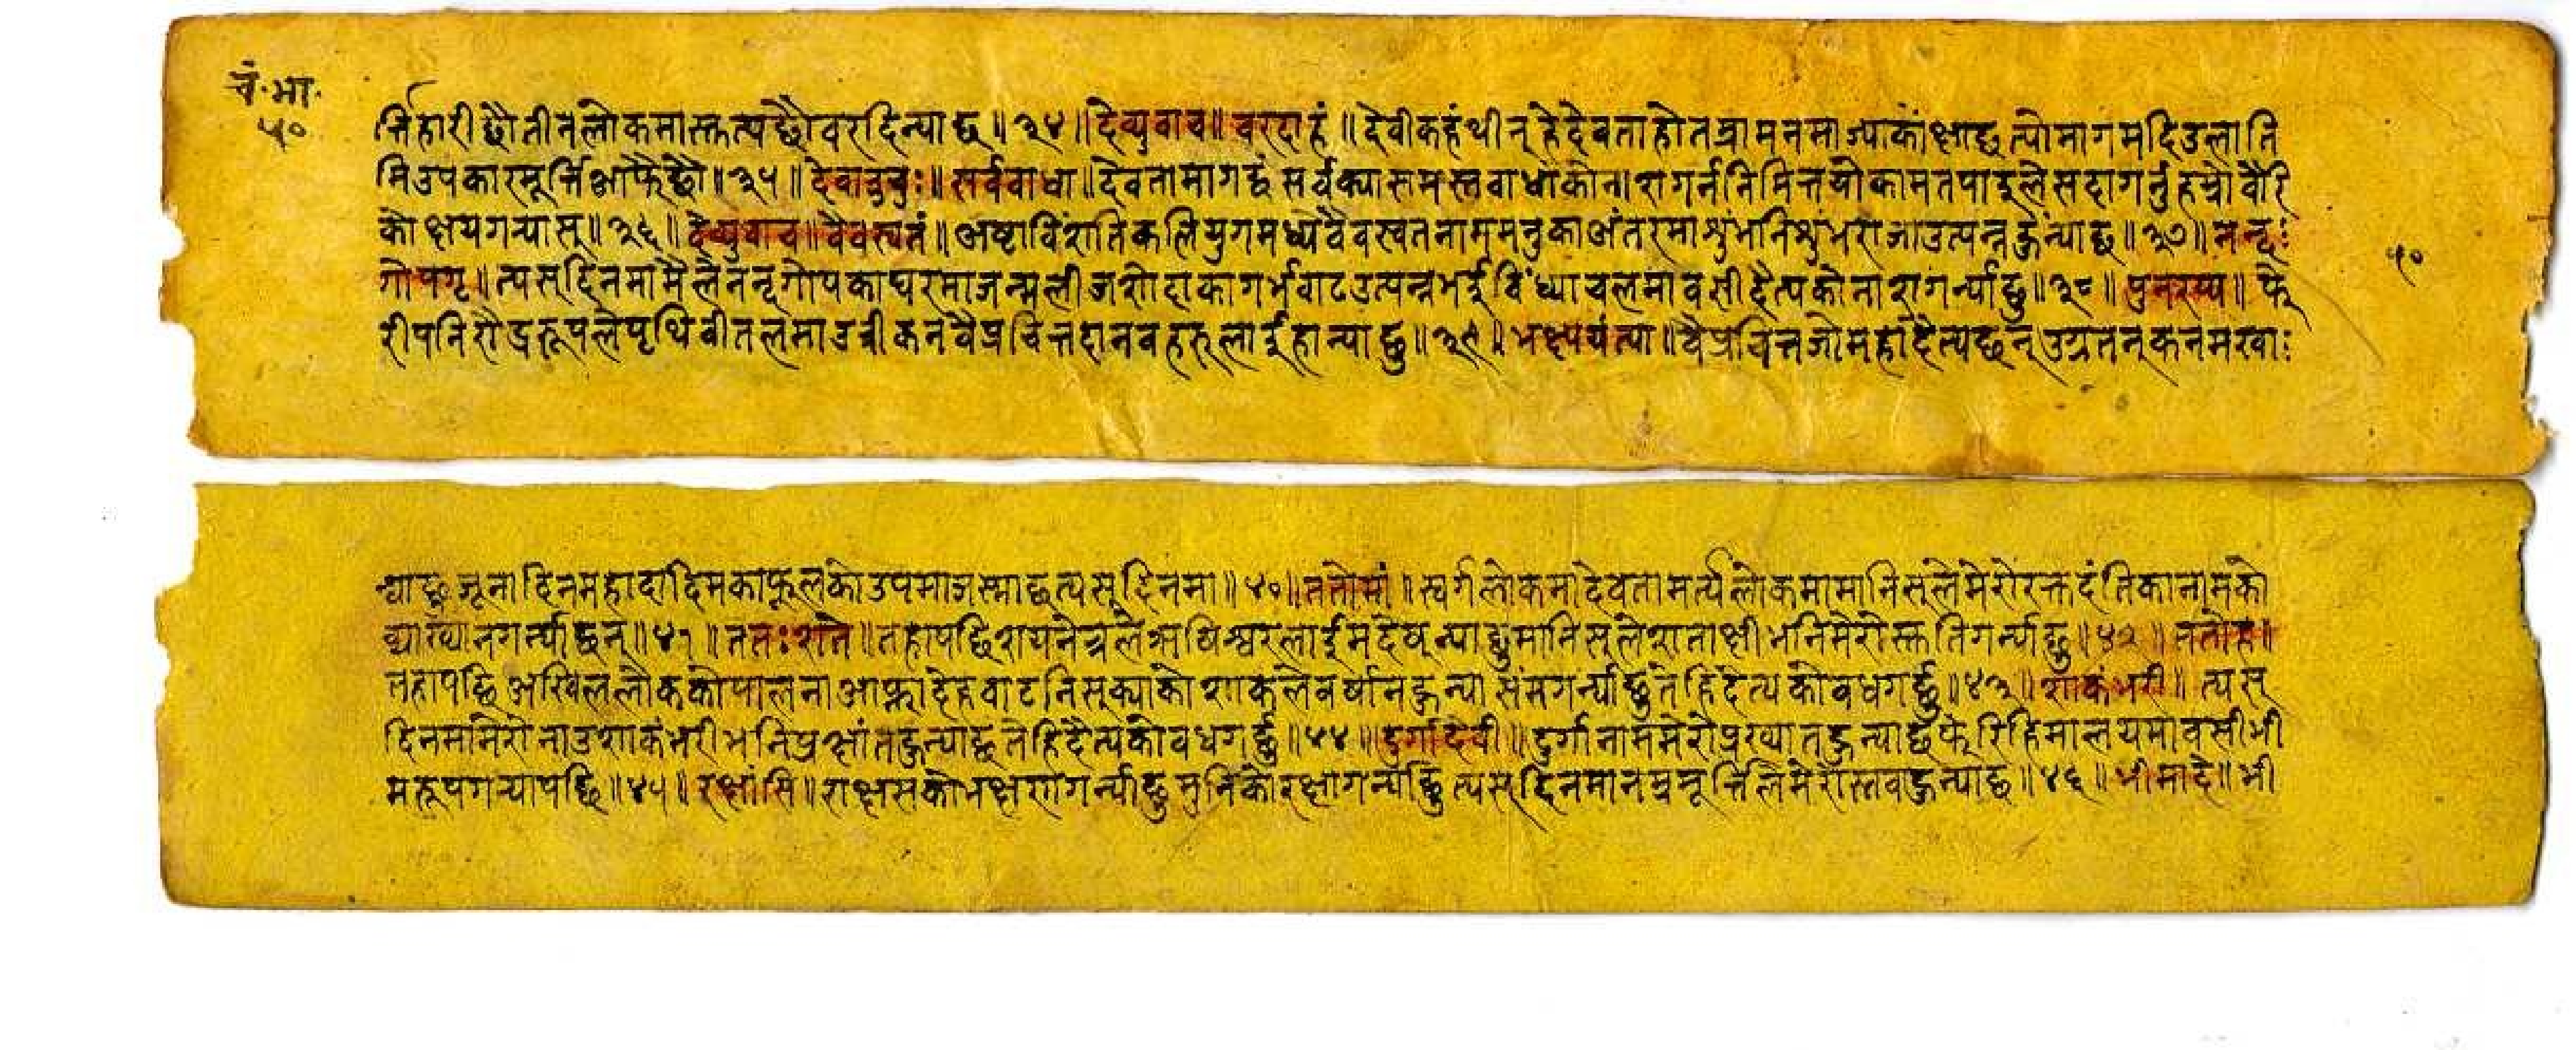 चं.भा.
५०
र्त्तिहारी छौ तीनलोकमा स्तुत्य छौ वरदिन्या छु ॥ ३५ ॥ देव्युवाच ॥ वरदाहं ॥ देवी कहंथीन् हे देवता हो तम्रा मनमा ज्या कांक्षा छ त्यो माग म दिउला ति
मि उपकारमूर्त्ति भाफै छौ ॥ ३५ ॥ देवाउचुः ॥ सर्ववाधा ॥ देवता मागदछं सर्वक्या समस्त वाधाको नाश गर्न निमित्त यो काम तपाइले सदा गर्नु हम्रो वैरि
को क्षय गन्यास् ॥ ३६ ॥ देव्युवाच ॥ वैवस्वतं ॥ अष्टाविंशति कलियुगमध्ये वैवस्वत नाम मनुका अंतरमा शुंभ निशुंभ राजा उत्पन्न हुंन्या छ ॥ ३७ ॥ नन्दः
गोपगृ ॥ त्यस् दिनमा मैले नन्दगोपका घरमा जन्म ली जशोदाका गर्भवाट उत्पन्न भई विंध्याचलमा वसी दैत्यको नाश गर्न्या छु ॥ ३८ ॥ पुनरप्य ॥ फे
री पनि रौद्ररूपले पृथिवीतलमा उत्रीकन वैप्रचित्त दानवहरूलाई हान्या छु ॥ ३९ ॥ भक्षयंत्या ॥ वैप्रचित्त जो महादैत्य छन् उग्र तनकन म खाः
५०
न्या छु जूना दिनमहा दादिमका फूलको उपमा जस्मा छ त्यस् दिनमा ॥ ४० ॥ ततो मां ॥ स्वर्गलोकमा देवता मर्त्यलोकमा मानिसले मेरो रक्तदंतिका नामको
व्याख्यान गर्न्या छन् ॥ ४१ ॥ ततः शते ॥ तहापछि शयनेत्रले ऋषिश्वरलाई म देष्न्या छु मानिसले शताक्षी भनि मेरो स्तुति गर्न्या छु ॥ ४२ ॥ ततोह ॥
तहापछि अखिललोकको पालना आफ्ना देहवाट निस्क्याको शाकले वर्षा नहुन्या संम गर्न्या छु तेहि दैत्यको वध गर्छु ॥ ४३ ॥ शाकंभरी ॥ त्यस्
दिनमा मेरो नाउ शाकंभरी भनि प्रक्षांत हुन्या छ तेहि दैत्यको वध गर्छु ॥ ४४ ॥ दुर्गादेवी ॥ दुर्गा नाम मेरो प्रख्यात हुन्या छ फेरि हिमालयमा वसी भी
मरूप गन्यापछि ॥ ४५ ॥ रक्षांसि ॥ राक्षसको भक्षण गर्न्या छु मुनिको रक्षा गर्न्या छु त्यस् दिनमा नम्रमूर्त्तिले मेरो स्तव हुन्या छ ॥ ४६ ॥ भीमादे ॥ भी